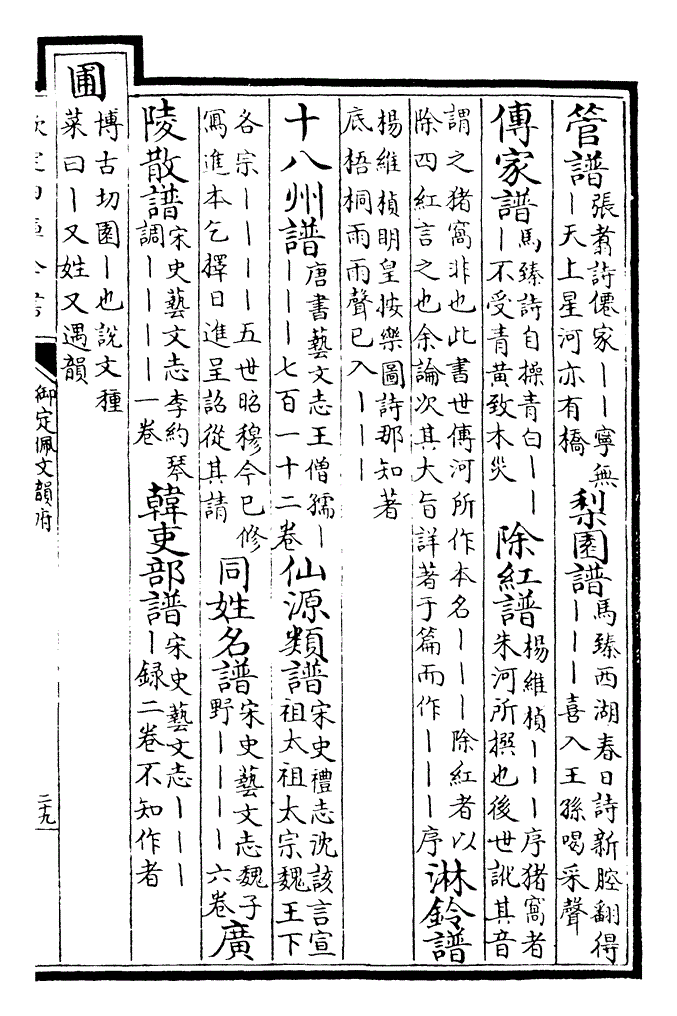 管譜張翥詩僊家丨丨寧無丨天上星河亦有橋梨園譜馬臻西湖春日詩新腔翻得丨丨丨喜入王孫喝采聲
傳家譜馬臻詩自操青白丨丨丨不受青黃致木災除紅譜楊維楨丨丨丨序猪窩者朱河所撰也後世訛其音
謂之猪窩非也此書世傳河所作本名丨丨丨除紅者以除四紅言之也余論次其大旨詳著于篇而作丨丨丨序淋鈴譜
楊維楨明皇按樂圖詩那知著底梧桐雨雨聲已入丨丨丨
十八州譜唐書藝文志王僧孺丨丨丨丨七百一十二卷仙源類譜宋史禮志沈該言宣祖太祖太宗魏王下
各宗丨丨丨丨五世昭穆今已修寫進本乞擇日進呈詔從其請同姓名譜宋史藝文志魏子野丨丨丨丨六卷廣
陵散譜宋史藝文志李約琴調丨丨丨丨一卷韓吏部譜宋史藝文志丨丨丨丨録二卷不知作者
圃博古切園丨也說文種菜曰丨又姓又遇韻
御定佩文韻府
二十九